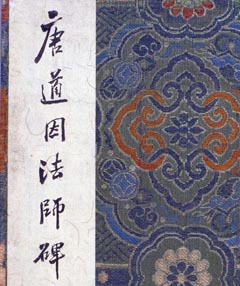 唐道因法師碑